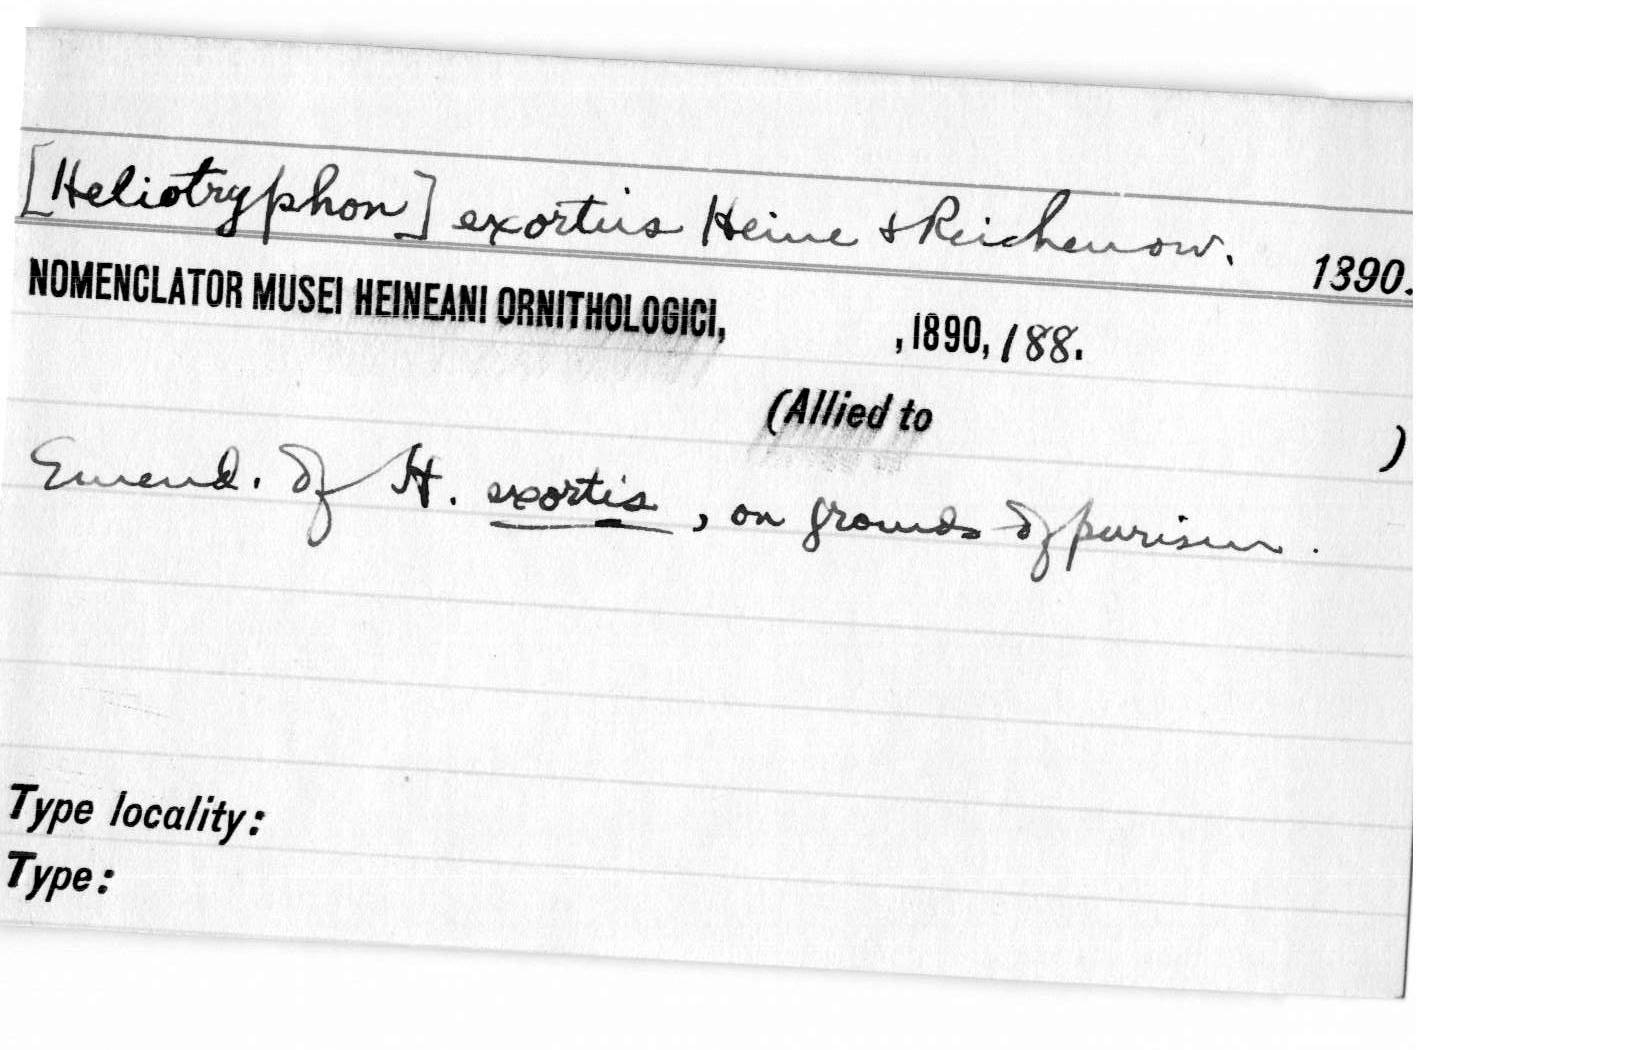 [Heliotryphon] exortus Heine & Reichenow. 1890.
NOMENCLATOR MUSEI HEINEANI ORNITHOLOGICI, , 1890, 188.
(Allied to )
Emend. of H. exortis, on grounds of purism.
Type locality:
Type: